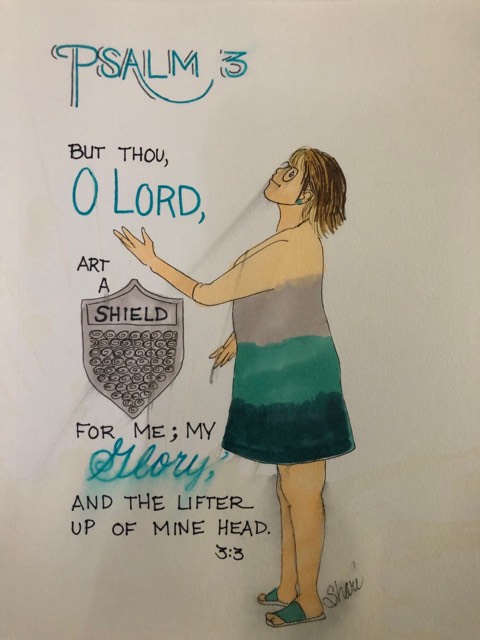 PSALM 3
BUT THOU,
O LORD,
ART
A
SHIELD
FOR ME; MY
Glory,
AND THE LIFTER
UP OF MINE HEAD.
3:3
Shari